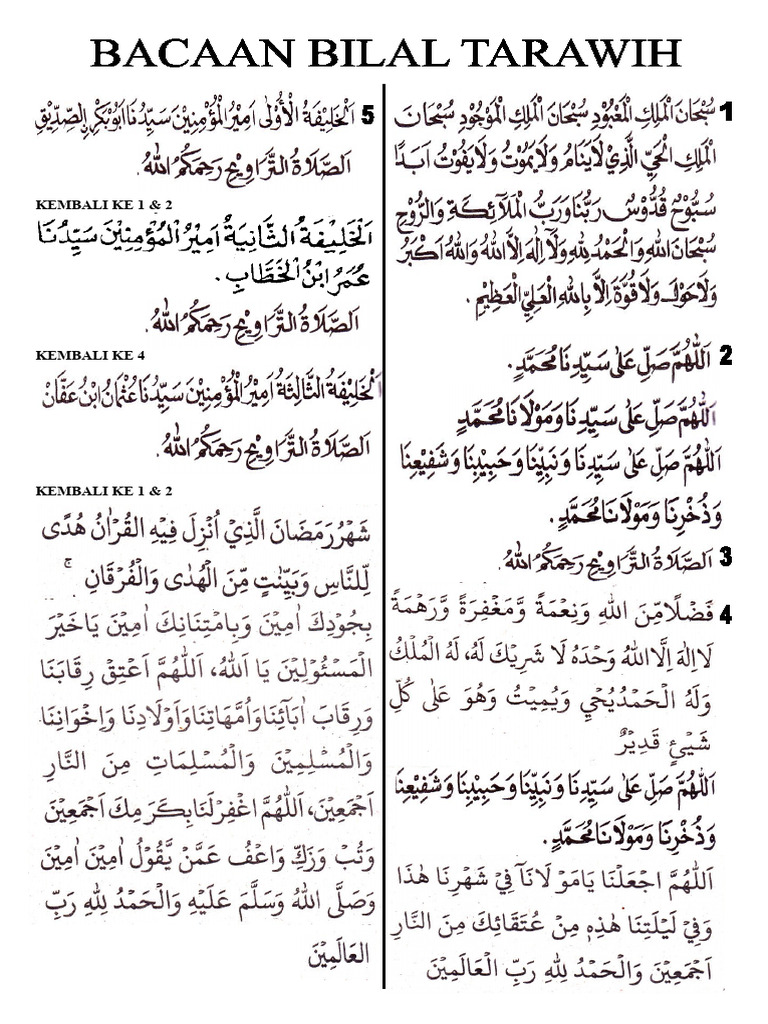 BACAAN BILAL TARAWIH
1 سُبْحَانَ الْمَلِكِ الْمَعْبُوْدِ سُبْحَانَ الْمَلِكِ الْمَوْجُوْدِ سُبْحَانَ
الْمَلِكِ الْحَيِّ الَّذِيْ لَايَنَامُ وَلَايَمُوْتُ وَلَايَفُوْتُ اَبَدًا
سُبُّوْحٌ قُدُّوْسٌ رَبُّنَا وَرَبُّ الْمَلَآئِكَةِ وَالرُّوْحِ
سُبْحَانَ اللهِ وَالْحَمْدُ لِلّٰهِ وَلَآاِلٰهَ اِلَّااللهُ وَاللهُ اَكْبَرُ
وَلَاحَوْلَ وَلَاقُوَّةَ اِلَّا بِاللهِ الْعَلِيِّ الْعَظِيْمِ.
2 اَللّٰهُمَّ صَلِّ عَلٰى سَيِّدِنَا مُحَمَّدٍ.
اَللّٰهُمَّ صَلِّ عَلٰى سَيِّدِنَا وَمَوْلَانَا مُحَمَّدٍ
اَللّٰهُمَّ صَلِّ عَلٰى سَيِّدِنَا وَنَبِيِّنَا وَحَبِيْبِنَا وَشَفِيْعِنَا
وَذُخْرِنَا وَمَوْلَانَا مُحَمَّدٍ.
3 اَلصَّلَاةُ التَّرَاوِيْحِ رَحِمَكُمُ اللهُ.
4 فَضْلًا مِنَ اللهِ وَنِعْمَةً وَّمَغْفِرَةً وَّرَهْمَةً
لَااِلٰهَ اِلَّااللهُ وَحْدَهُ لَا شَرِيْكَ لَهُ، لَهُ الْمُلْكُ
وَلَهُ الْحَمْدُ يُحْيِ وَيُمِيْتُ وَهُوَ عَلٰى كُلِّ
شَيْئٍ قَدِيْرٌ
اَللّٰهُمَّ صَلِّ عَلٰى سَيِّدِنَا وَنَبِيِّنَا وَحَبِيْبِنَا وَشَفِيْعِنَا
وَذُخْرِنَا وَمَوْلَانَا مُحَمَّدٍ.
اَللّٰهُمَّ اجْعَلْنَا يَامَوْلَانَآ فِيْ شَهْرِنَا هٰذَا
وَفِيْ لَيْلَتِنَا هٰذِهِ مِنْ عُتَقَائِكَ مِنَ النَّارِ
اَجْمَعِيْنَ وَالْحَمْدُ لِلّٰهِ رَبِّ الْعَالَمِيْنَ
5 اَلْخَلِيْفَةُ الْأُوْلٰى اَمِيْرُ الْمُؤْمِنِيْنَ سَيِّدُنَا اَبُوْبَكْرِنِ الصِّدِّيْقِ
اَلصَّلَاةُ التَّرَاوِيْحِ رَحِمَكُمُ اللهُ.
KEMBALI KE 1 & 2
اَلْخَلِيْفَةُ الثَّانِيَةُ اَمِيْرُ الْمُؤْمِنِيْنَ سَيِّدُنَا
عُمَرُ ابْنُ الْخَطَّابِ.
اَلصَّلَاةُ التَّرَاوِيْحِ رَحِمَكُمُ اللهُ.
KEMBALI KE 4
اَلْخَلِيْفَةُ الثَّالِثَةُ اَمِيْرُ الْمُؤْمِنِيْنَ سَيِّدُنَا عُثْمَانُ ابْنُ عَفَّانْ
اَلصَّلَاةُ التَّرَاوِيْحِ رَحِمَكُمُ اللهُ.
KEMBALI KE 1 & 2
شَهْرُ رَمَضَانَ الَّذِيْ اُنْزِلَ فِيْهِ الْقُرْاٰنُ هُدًى
لِّلنَّاسِ وَبَيِّنٰتٍ مِّنَ الْهُدٰى وَالْفُرْقَانِ ۚ
بِجُوْدِكَ اٰمِيْنَ وَبِامْتِنَانِكَ اٰمِيْنَ يَاخَيْرَ
الْمَسْئُوْلِيْنَ يَا اَللهُ، اَللّٰهُمَّ اَعْتِقْ رِقَابَنَا
وَرِقَابَ اٰبَآئِنَا وَاُمَّهَاتِنَا وَاَوْلَادِنَا وَاِخْوَانِنَا
وَالْمُسْلِمِيْنَ وَالْمُسْلِمَاتِ مِنَ النَّارِ
اَجْمَعِيْنَ، اَللّٰهُمَّ اغْفِرْلَنَا بِكَرَمِكَ اَجْمَعِيْنَ
وَتُبْ وَزَكِّ وَاعْفُ عَمَّنْ يَّقُوْلُ اٰمِيْنَ اٰمِيْنَ
وَصَلَّى اللهُ وَسَلَّمَ عَلَيْهِ وَالْحَمْدُ لِلّٰهِ رَبِّ
الْعَالَمِيْنَ